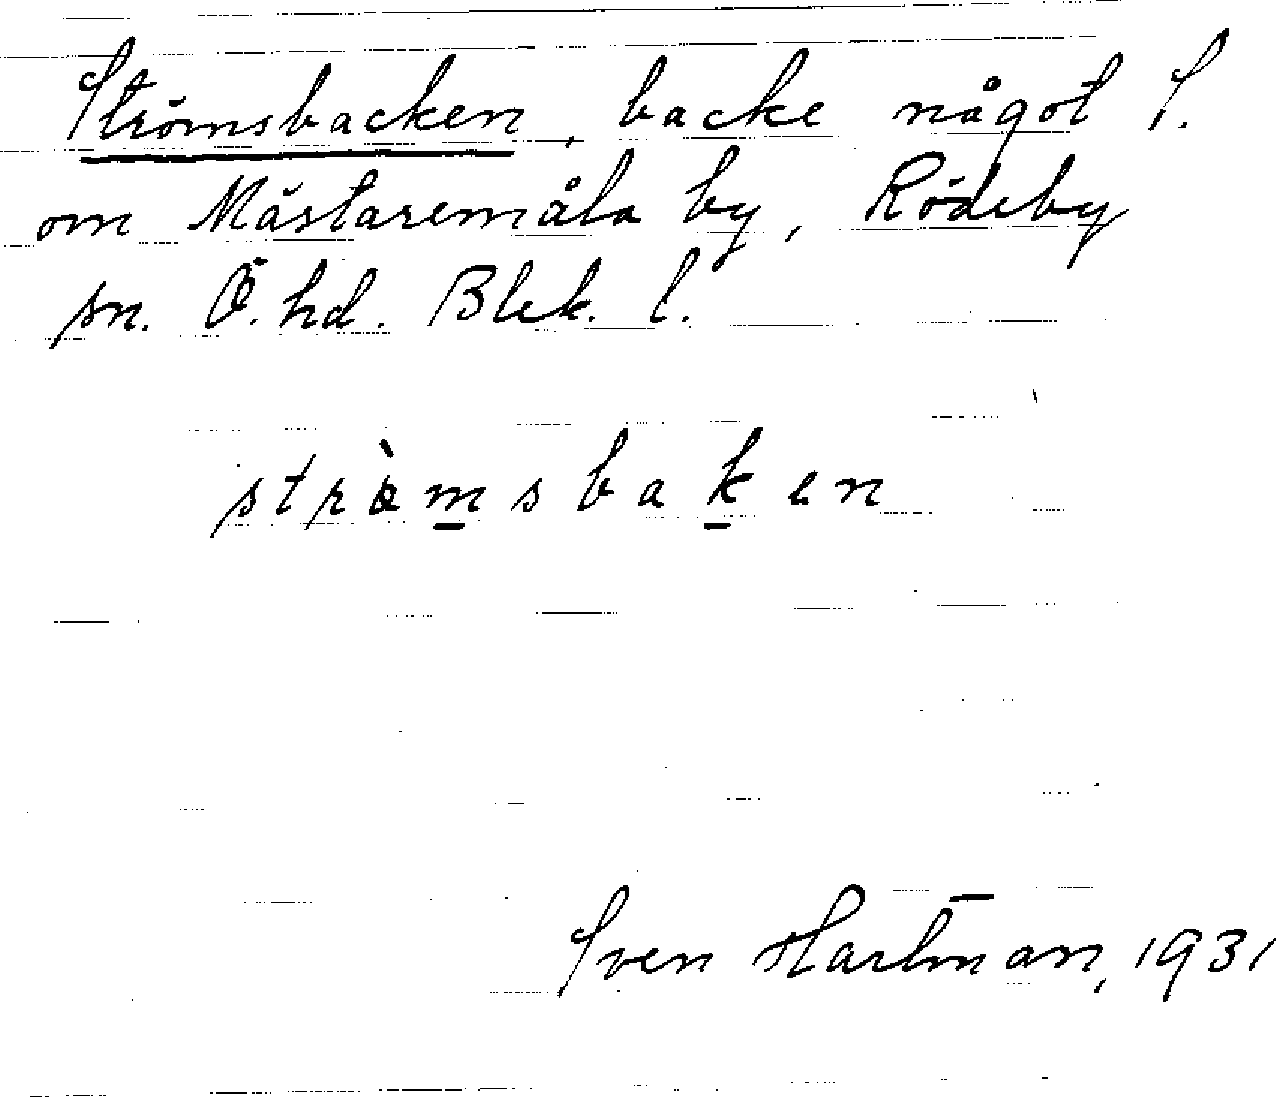 Strömsbacken, backe något S.
om Mästaremåla by, Rödeby
sn. Ö. hd. Blek. l.
strømsbaken
Sven Hartman, 1931